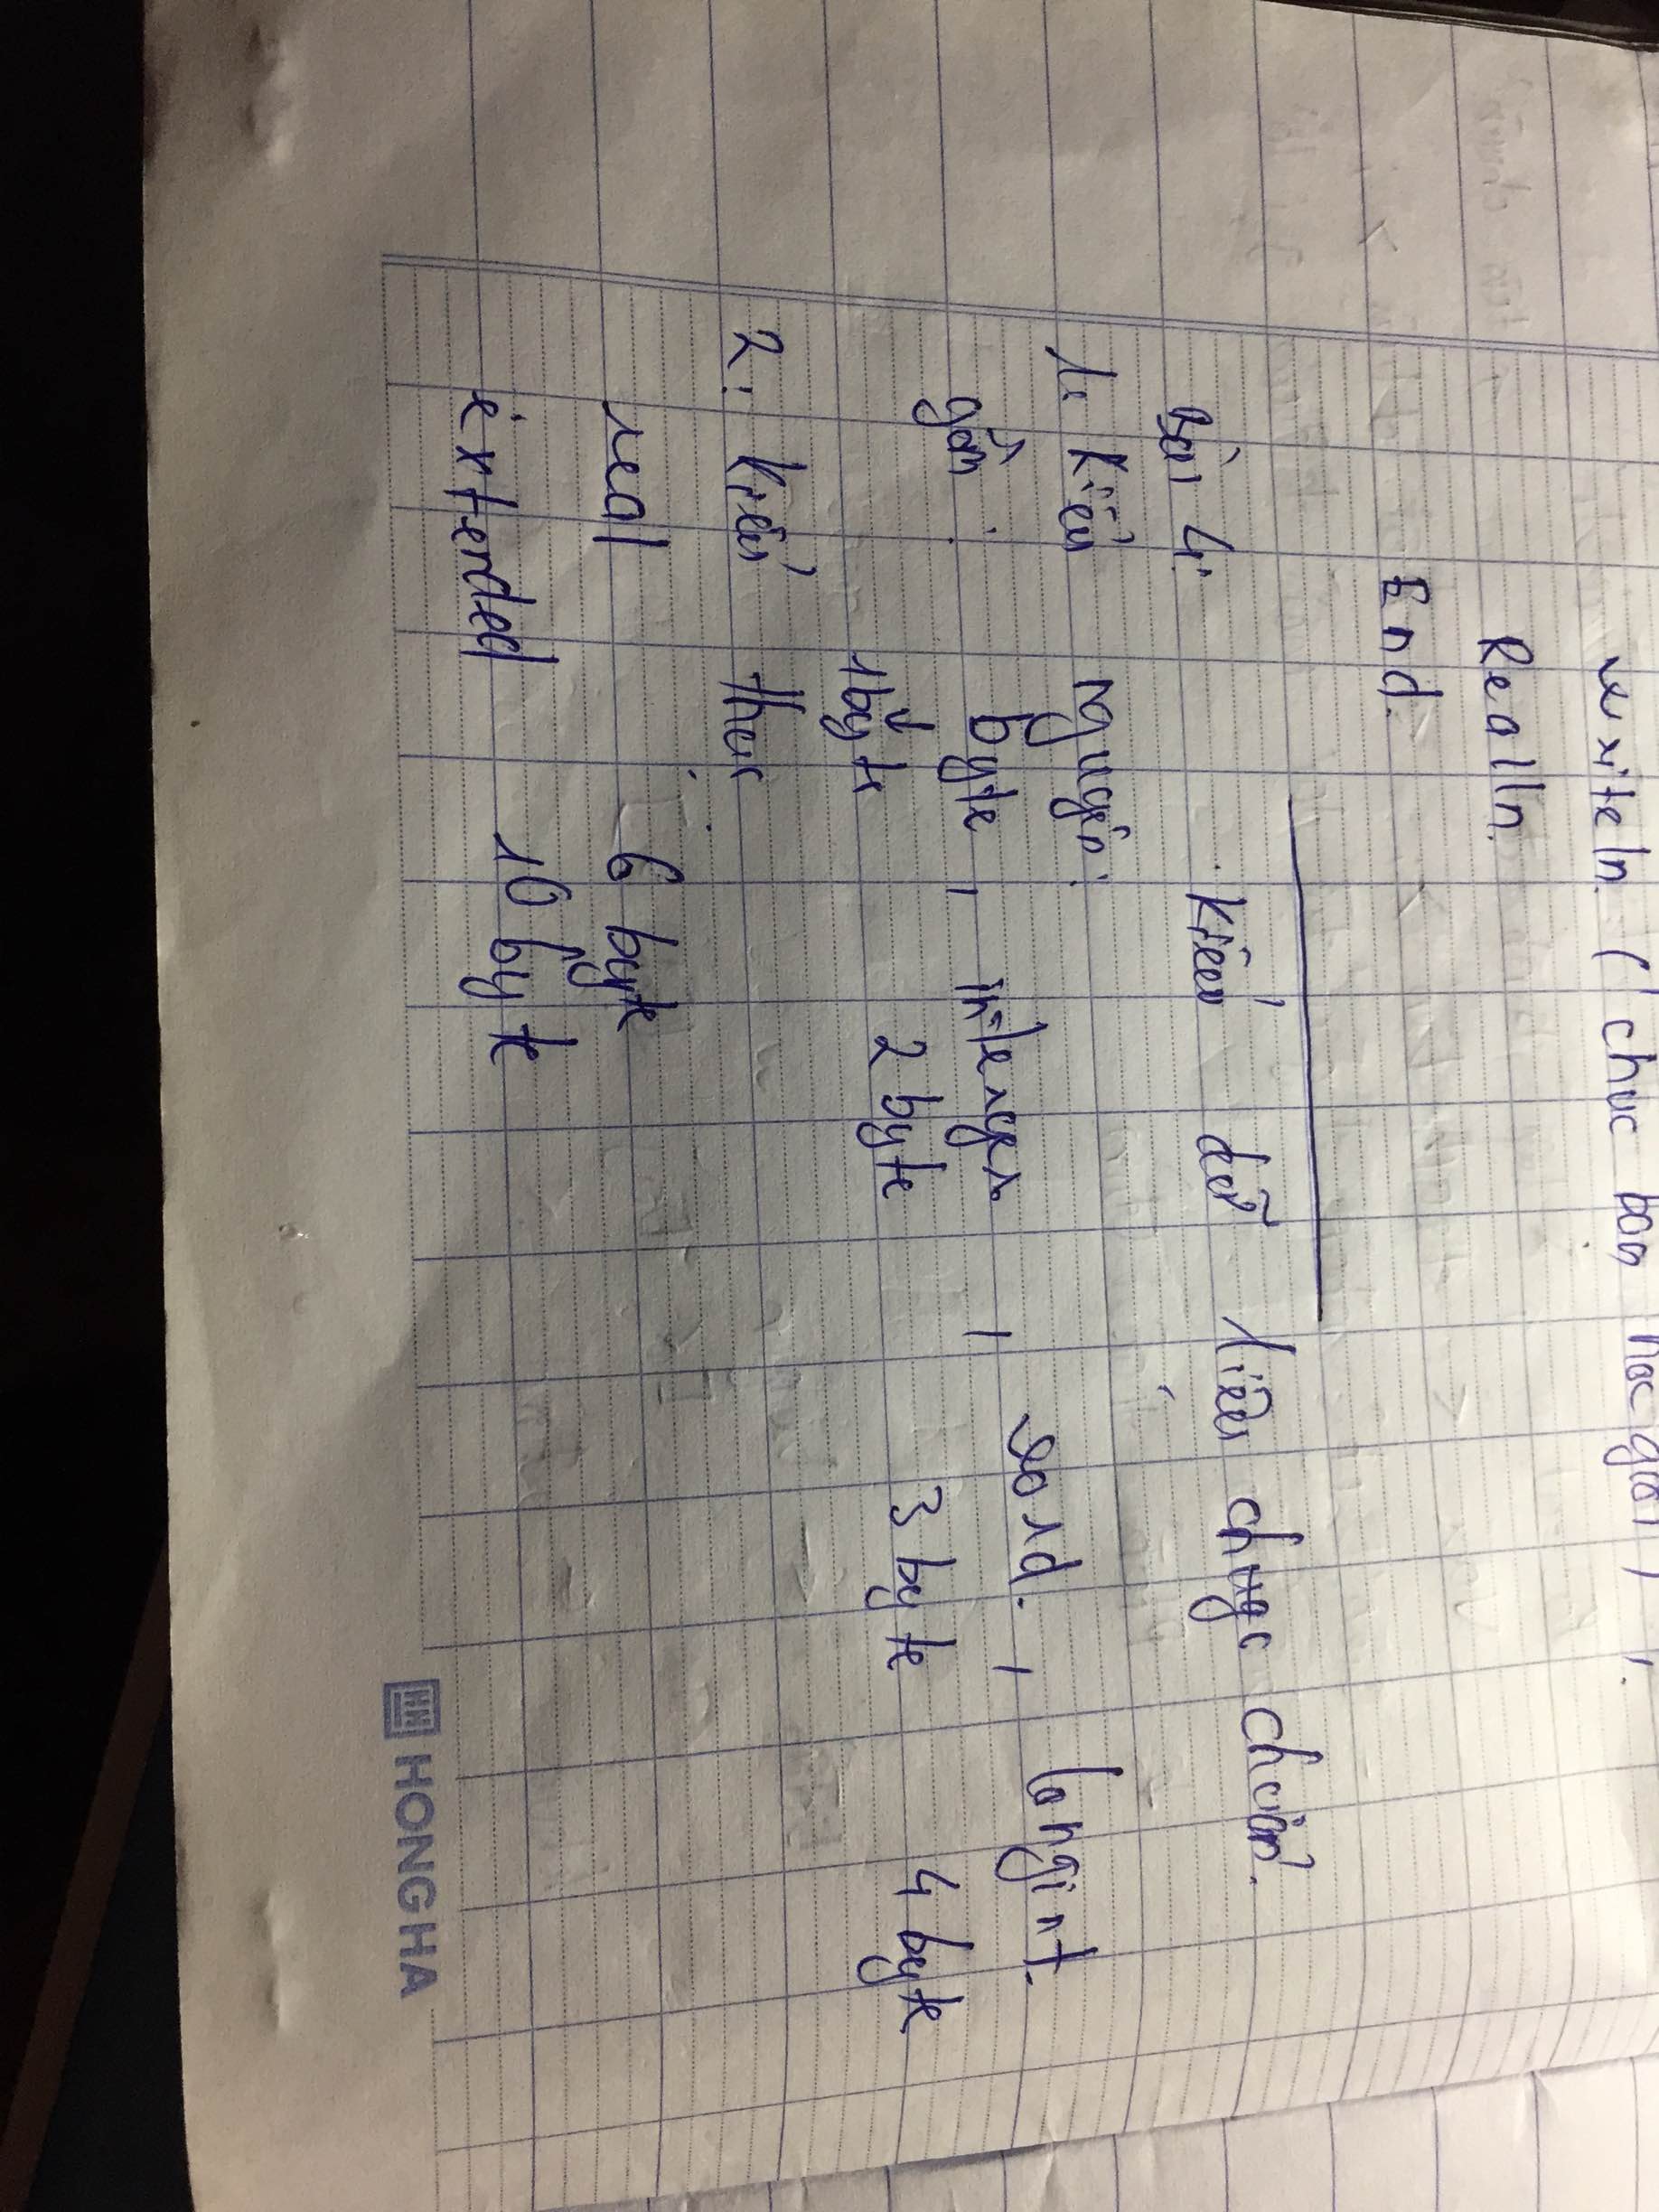 writeln ('chuc ban noc gioi');
Realln.
End.
Bài 4: Kiểu dữ liệu chuẩn.
1. Kiểu nguyên:
gồm: byte, intenger, word, longint.
1 byte 2 byte 3 byte 4 byte
2: Kiểu thực
real 6 byte
extended 10 byte
HONG HA